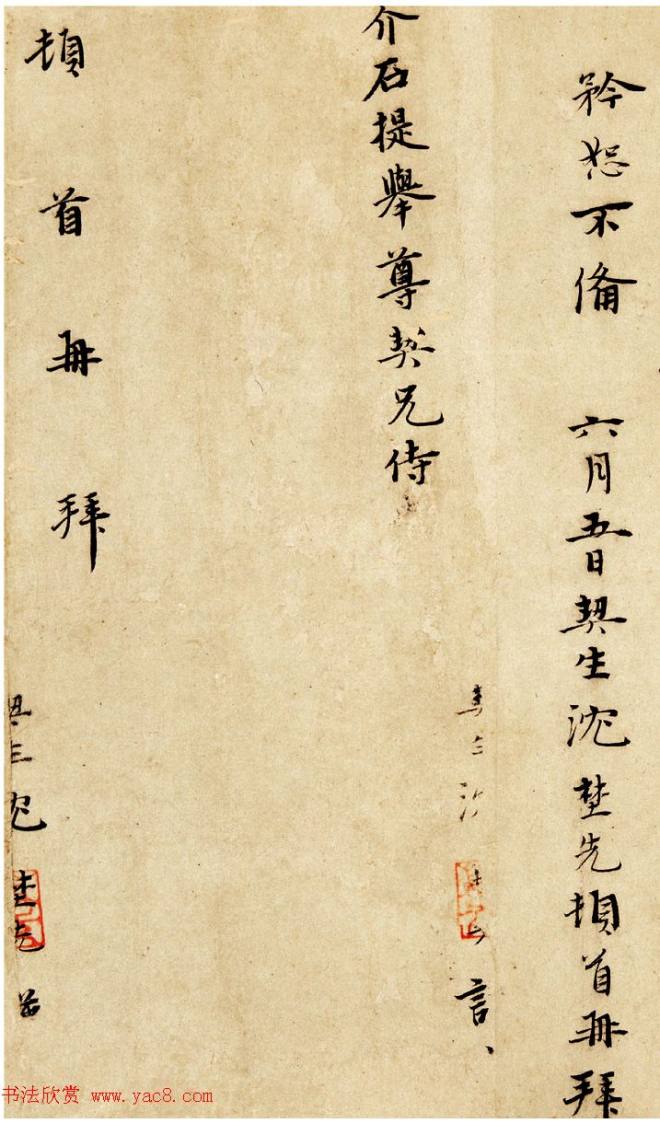 矜恕不備 六月五日契生沈埜先頓首再拜
言
介石提舉尊契兄侍
頓首再拜
书法欣赏 www.yac8.com